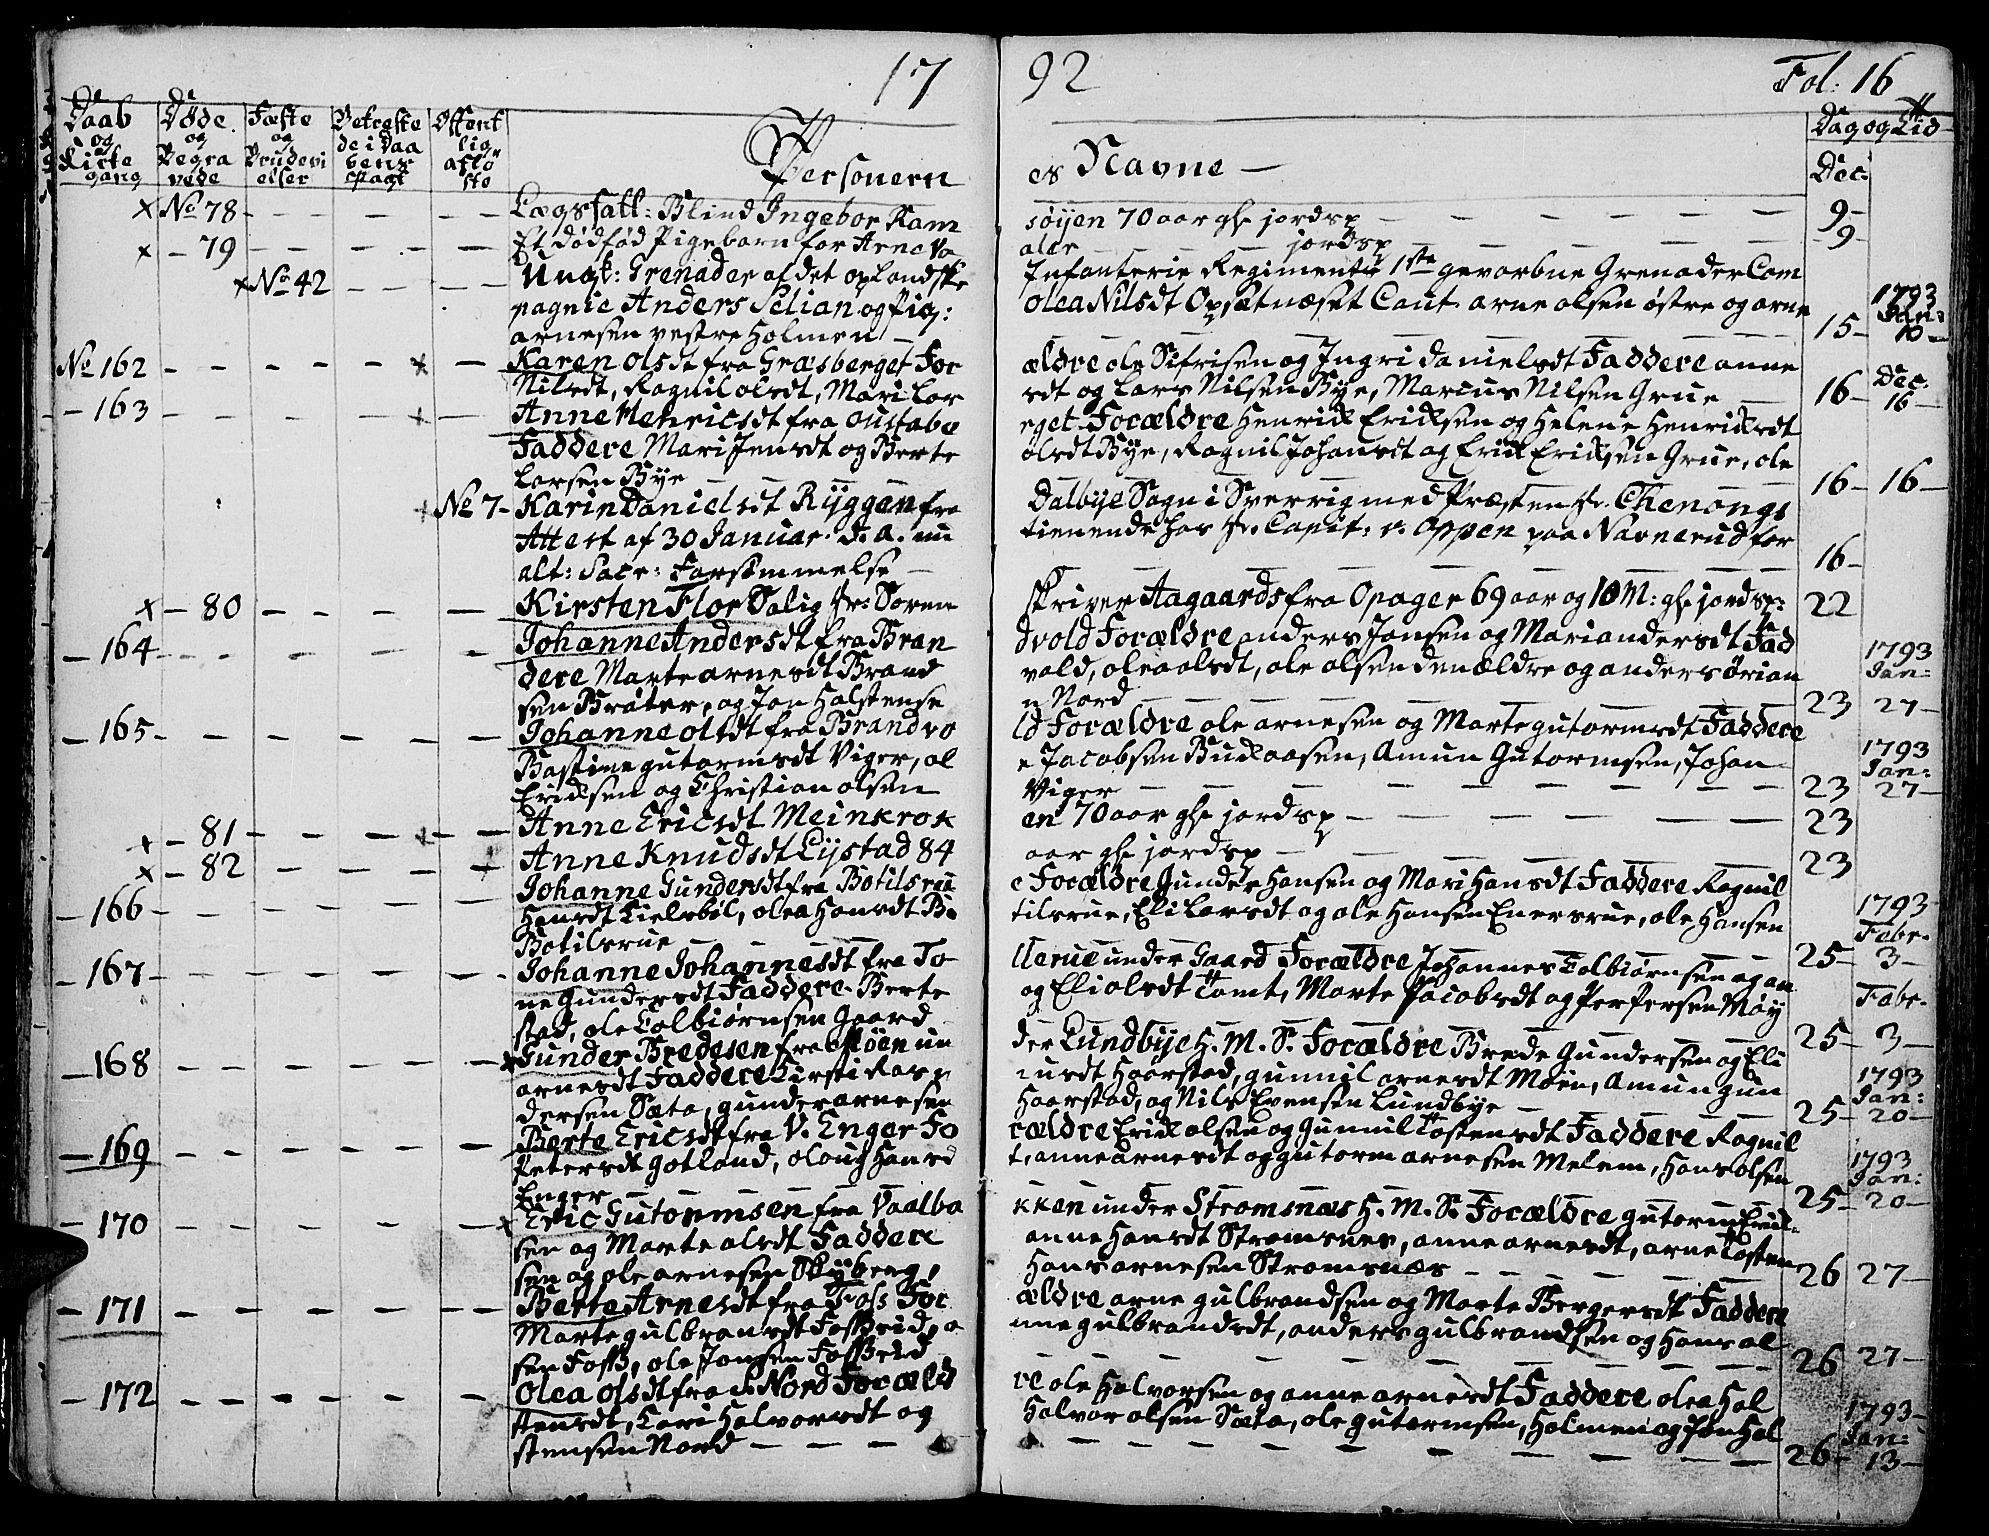 17 92 Fol: 16
Daab og Kirke gang
Døde og Begra vede
Fæste og Brudevi elser
Betroste de i Daa bens pagt
Offent lig afløste
Personern es Navne —
Dag og Tid
Dec:
x No 78 Lægsfatt: Blind Ingebor Ram søijen 70 aar gl jordsp 9
x 79 Et dødfød Pigebarn for Arne Va aler jordsp 9
x No 42 Ungk: Grenader af det oplandske Infanterie Regiments 1ste gevorbne Grenader Com
pagnie Anders Selian og Pig: olea Nilsdt Opsætnæset Caut. arne olsen østre og arne
arnesen vestre Holmen 15 1793 Jan: 10
No 162 Karen olsdt fra Græsberget For ældre ole Sifrisen og Ingri danielsdt Faddere anne
Nilsdt, Ragnil olsdt, Mari Lar sdt og Lars Nilsen Bye, Marcus Nilsen Grue 16 Dec. 16
163 Anne Henricsdt fra oustabe rget Forældre Henrick Ericksen og Helene Henricksdt
Faddere Mari Jensdt og Berte olsdt Bye, Ragnil Johansdt og Erick Ericksen Grue, ole
Larsen Bye 16 16
No 7 Karin Danielsdt Ryggen fra Dalbye Sogn i Sverrig med Præsten Hr. Chenongs
Attest af 30 Januar. d. a. nu tienende hos Hr. Capit: v. Oppen paa Navnerud for
alt: Sacr: Forsømmelse 16
x 80 Kirsten Flor Salig Hr: Soren skriver Aagaards fra Opager 69 aar og 10 M: gl jordsp: 22
164 Johanne Andersdt fra Bran dvold Forældre anders Jonsen og Mari andersdt Fad
dere Marte arnesdt Brand vold, olea olsdt, ole olsen den ældre og anders ørian
sen Bråter, og Jon Halstense n Nord 23 1793 Jan: 27
165 Johanne olsdt fra Brandvo ld Forældre ole arnesen og Marte gutormsdt Faddere
Bastine gutormsdt Viger, ol e Jacobsen Buckaasen, Amun Gutormsen, Johan
Ericksen og Christian olsen Viger 23 1793 Jan: 27
x 81 Anne Ericsdt Meinkrok en 70 aar gl jordsp 23
x 82 Anne Knudsdt Lystad 84 aar gl jordsp 23
166 Johanne Gundersdt fra Botilsru e Forældre Gunder Hansen og Mari Hansdt Faddere Ragnil
Hansdt Kielsbøl, olea Hansdt Bo tilsrue, Eli Larsdt og ole Hansen Enersrue, ole Hansen
Botilsrue 25 1793 Febr. 3
167 Johanne Johannesdt fra To llerue under Gaard Forældre Johannes Tolbiørnsen og an
ne Gundersdt Faddere. Berte og Eli olsdt Tomt, Marte Jacobsdt og Per Persen Møy
stad, ole Tolbiørnsen Gaard 25 Febr. 3
168 Gunder Bredesen fra Møen un der Lundbye H. M. S. Forældre Brede Gundersen og Eli
arnesdt Faddere Kirsti Ras musdt Haarstad, gunnil arnesdt Moen, Amun gun
dersen Sæta, gunder arnesen Haarstad, og Nils Evensen Lundbye 25 1793 Jan: 20
169 Berte Ericsdt fra V. Enger Fo rældre Erick olsen og Gunnil Tostensdt Faddere Ragnil
Petersdt Gotland, oloug Hansd t, anne arnesdt og gutorm arnesen Melem, Hans olsen
Enger 25 1793 Jan: 20
170 Eric Gutormsen fra Vaalba kken under Stromsnæs H. M. S. Forældre gutorm Erick
sen og Marte olsdt Faddere anne Hansdt Stromsnes, anne arnesdt, arne Tosten
sen og ole arnesen Skyberg, Hans arnesen Stromsnæs 26 27
171 Berte Arnesdt fra Foss For ældre arne gulbrandsen og Marte Bergersdt Faddere
Marte gulbransdt Fosseid, a nne gulbrandsdt, anders gulbrandsen og Hans ol
sen Foss, ole Jonsen Fosseid 26 27
172 Olea olsdt fra S. Nord Foræld re ole Halvorsen og anne arnesdt Faddere olea Hal
stensdt, Kari Halvorsdt og Halvor olsen Sæta, ole gutormsen, Holmen og Jon Hal
stensen Nord 26 1793 Jan: 13